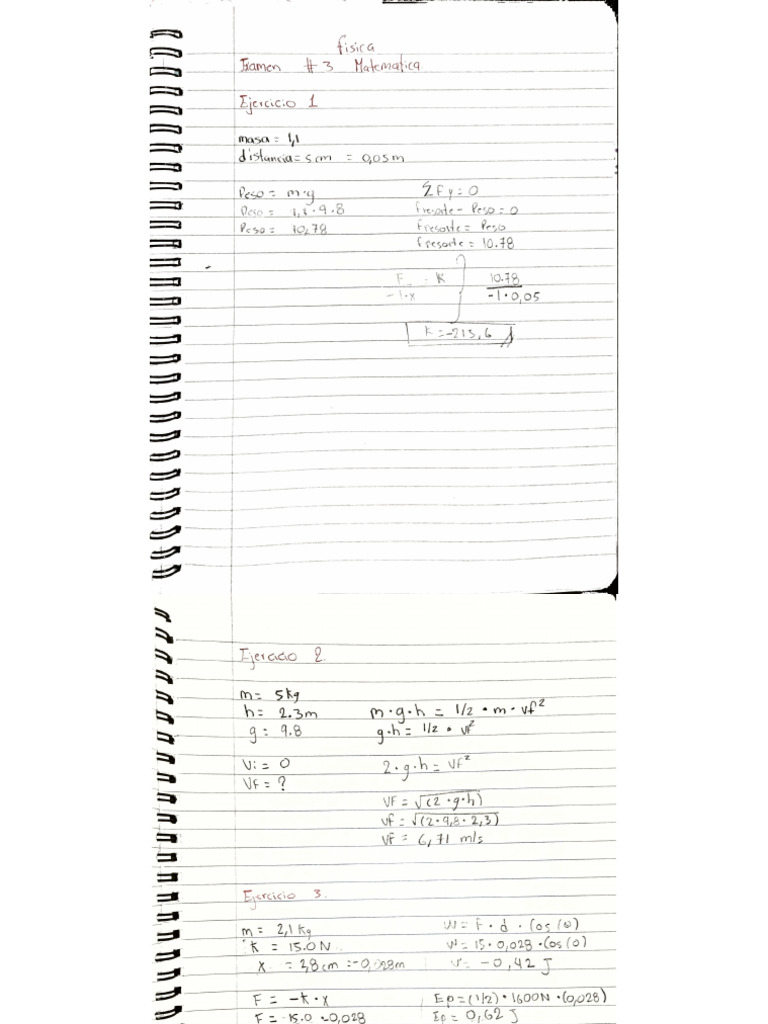 fisica
Examen # 3 Matematica
Ejercicio 1
masa = 1,1
distancia = 5 cm = 0,05 m
Peso = m·g
Peso = 1,1·9.8
Peso = 10,78
ΣFy = 0
fresorte - Peso = 0
fresorte = Peso
fresorte = 10.78
F / -1·x = K
10.78 / -1·0,05
K = -215,6
Ejercicio 2.
m = 5kg
h = 2.3m
g = 9.8
Vi = 0
VF = ?
m·g·h = 1/2 · m · vf²
g·h = 1/2 · vf²
2·g·h = VF²
VF = √(2·g·h)
vf = √(2·9,8·2,3)
VF = 6,71 m/s
Ejercicio 3.
m = 2,1 kg
K = 15.0 N
x = 2,8 cm = -0,028m
W = F · d · Cos(0)
W = 15 · 0,028 · Cos(0)
= -0,42 J
F = -K·x
F = -15.0 · 0,028
Ep = (1/2) · 1600N · (0,028)
Ep = 0,62 J